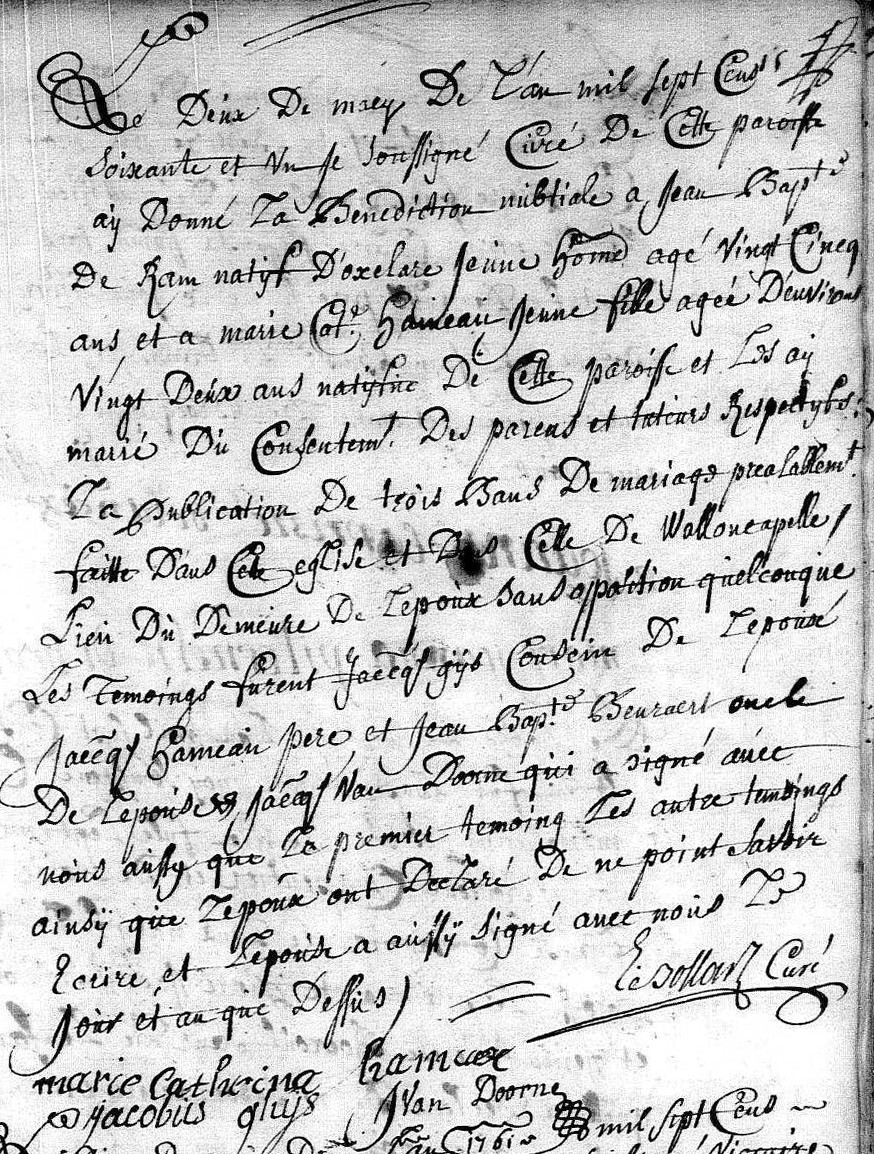 Le Deux De mey De L'an mil sept Cens
soixante et vn Je soussigné Curé De Cette paroisse
ay Donné La Benediction nubtiale a Jean Bapte
De Ram natyf D'oxelare Jeune home agé vingt Cincq
ans et a marie Cat.e hameau Jeune fille ageé D'environs
vingt Deux ans natyfue De Cette paroisse et Les ay
marié Du Consentemt. Des parens et tuteurs Respectyfs:
La Publication De trois Bans De mariage prealablemt.
faitte Dans Cette eglise et Dans Celle De Walloncapelle
Lieu Du Demeure De Lepoux sans opposition quelconque
Les Temoings furent Jaecq gys Consein De Lepoux
Jaecq hameau pere et Jean Bap.te Beuraert oncle
De Lepouse Jaecq Van Doorne qui a signé avec
nous aussy que Le premier temoing Les autre temoings
ainsÿ que Lepoux ont Declaré De ne point Savoir
Ecrire et Lepouse a aussÿ signé avec nous Le
Jour et an que Dessus
Curé
marie Catherina hameau
Jacobus ghys J Van Doorne
L'an 1761 mil sept Cens